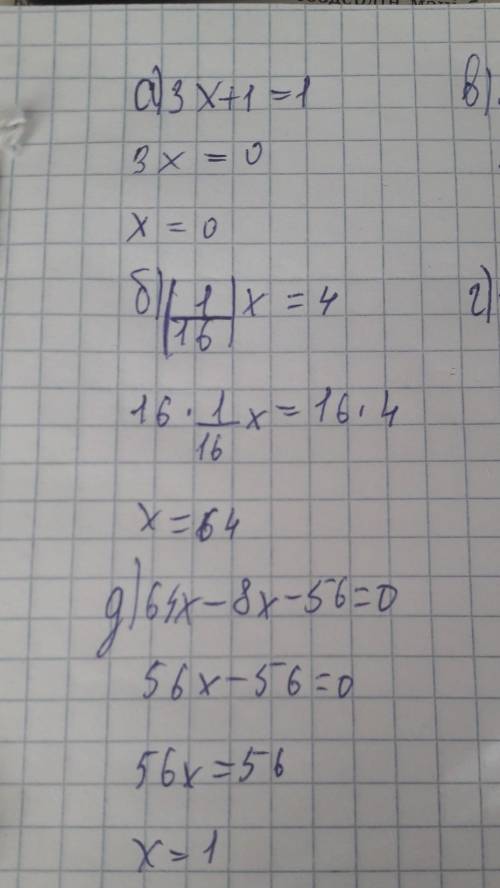 а) 3x+1=1
в)
3x = 0
x = 0
б) |1/16| x = 4
г)
16 · 1/16 x = 16 · 4
x = 64
д) 64x-8x-56=0
56x-56=0
56x=56
x=1